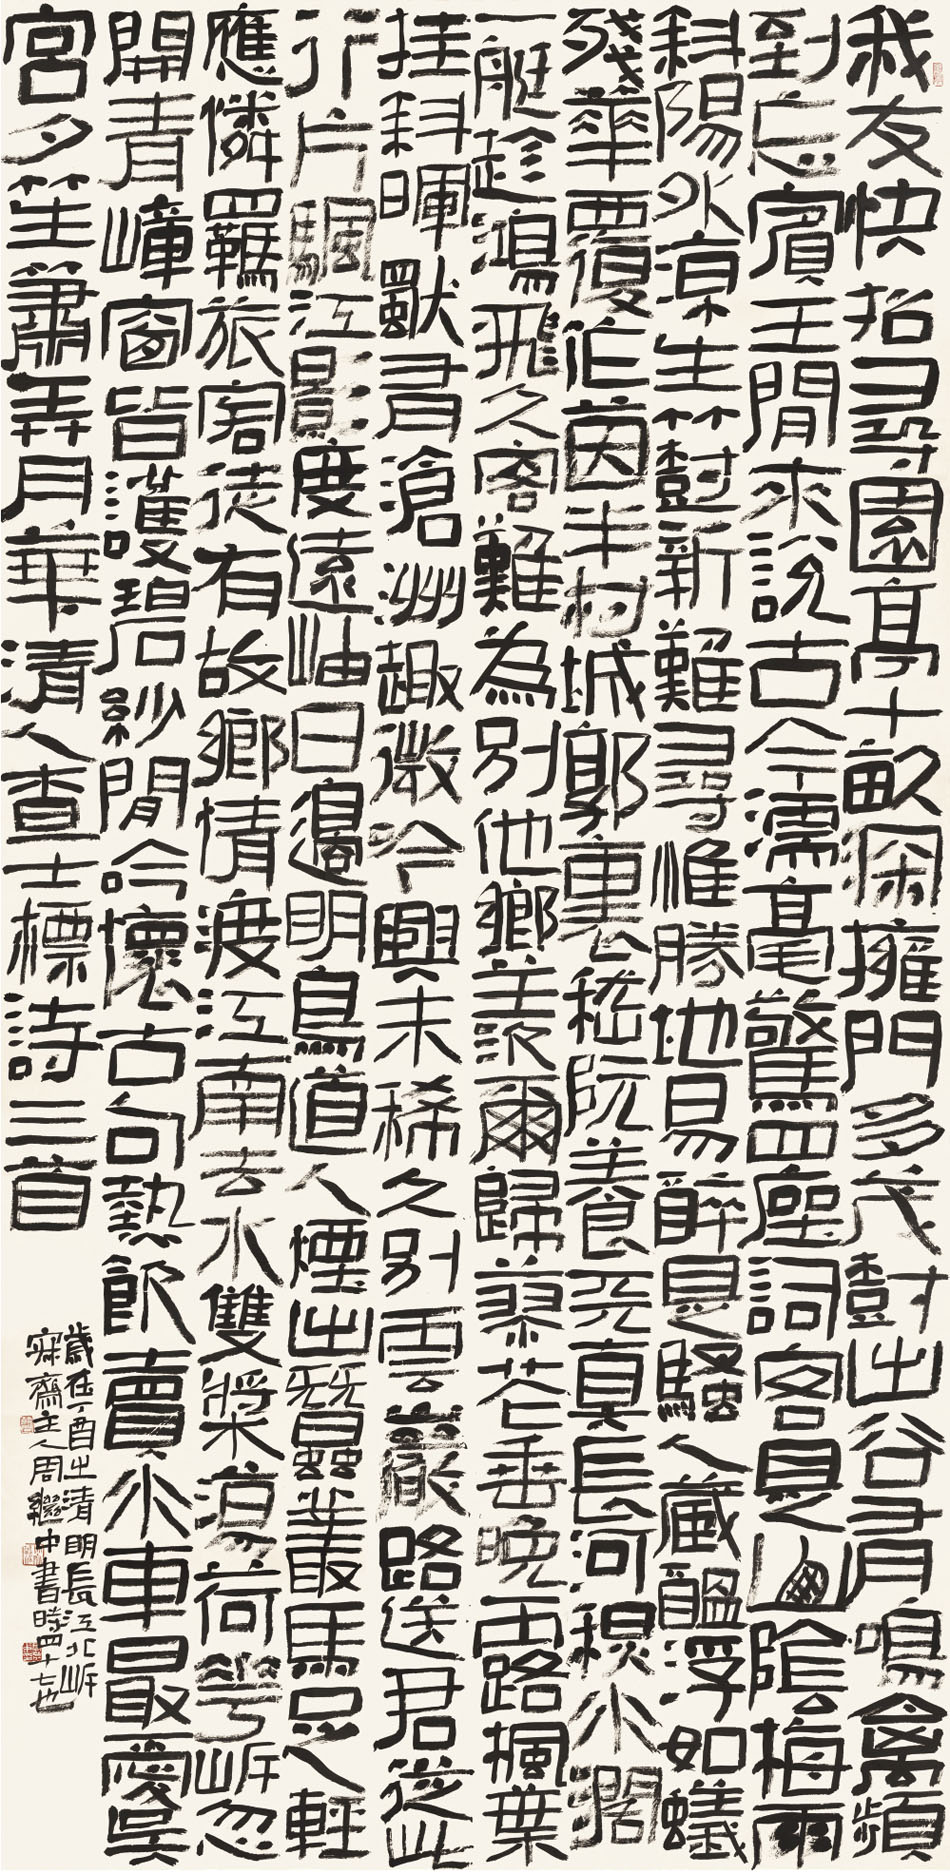 我友快招尋園亭十畝深擁門多茂樹出谷有鳴禽頻
到忘賓主閒來說古今濡毫驚四座詞客見山陰梅雨
斜陽外涼生竹樹新難尋惟勝地易醉是騷人藏醞浮如蟻
殘華覆作茵半村城郭裏嵇阮養天真長河積水闊
一艇趁鴻飛久客難為別他鄉羨爾歸蓼花垂晚露楓葉
挂斜暉獨有滄洲趣微吟興未稀久別雲巖路送君從此
行片颿江影度遠岫日邊明鳥道人煙出蠶叢馬足輕
應憐羈旅客徒有故鄉情渡江南去水雙槳蕩荷花岸忽
開青嶂窗皆護碧紗閒吟懷古句熱飲賣冰車最愛吳
宮夕笙簫弄月華清人查士標詩三首
歲在丁酉之清明長江北岸
寐齋主人周繼中書時四十七也